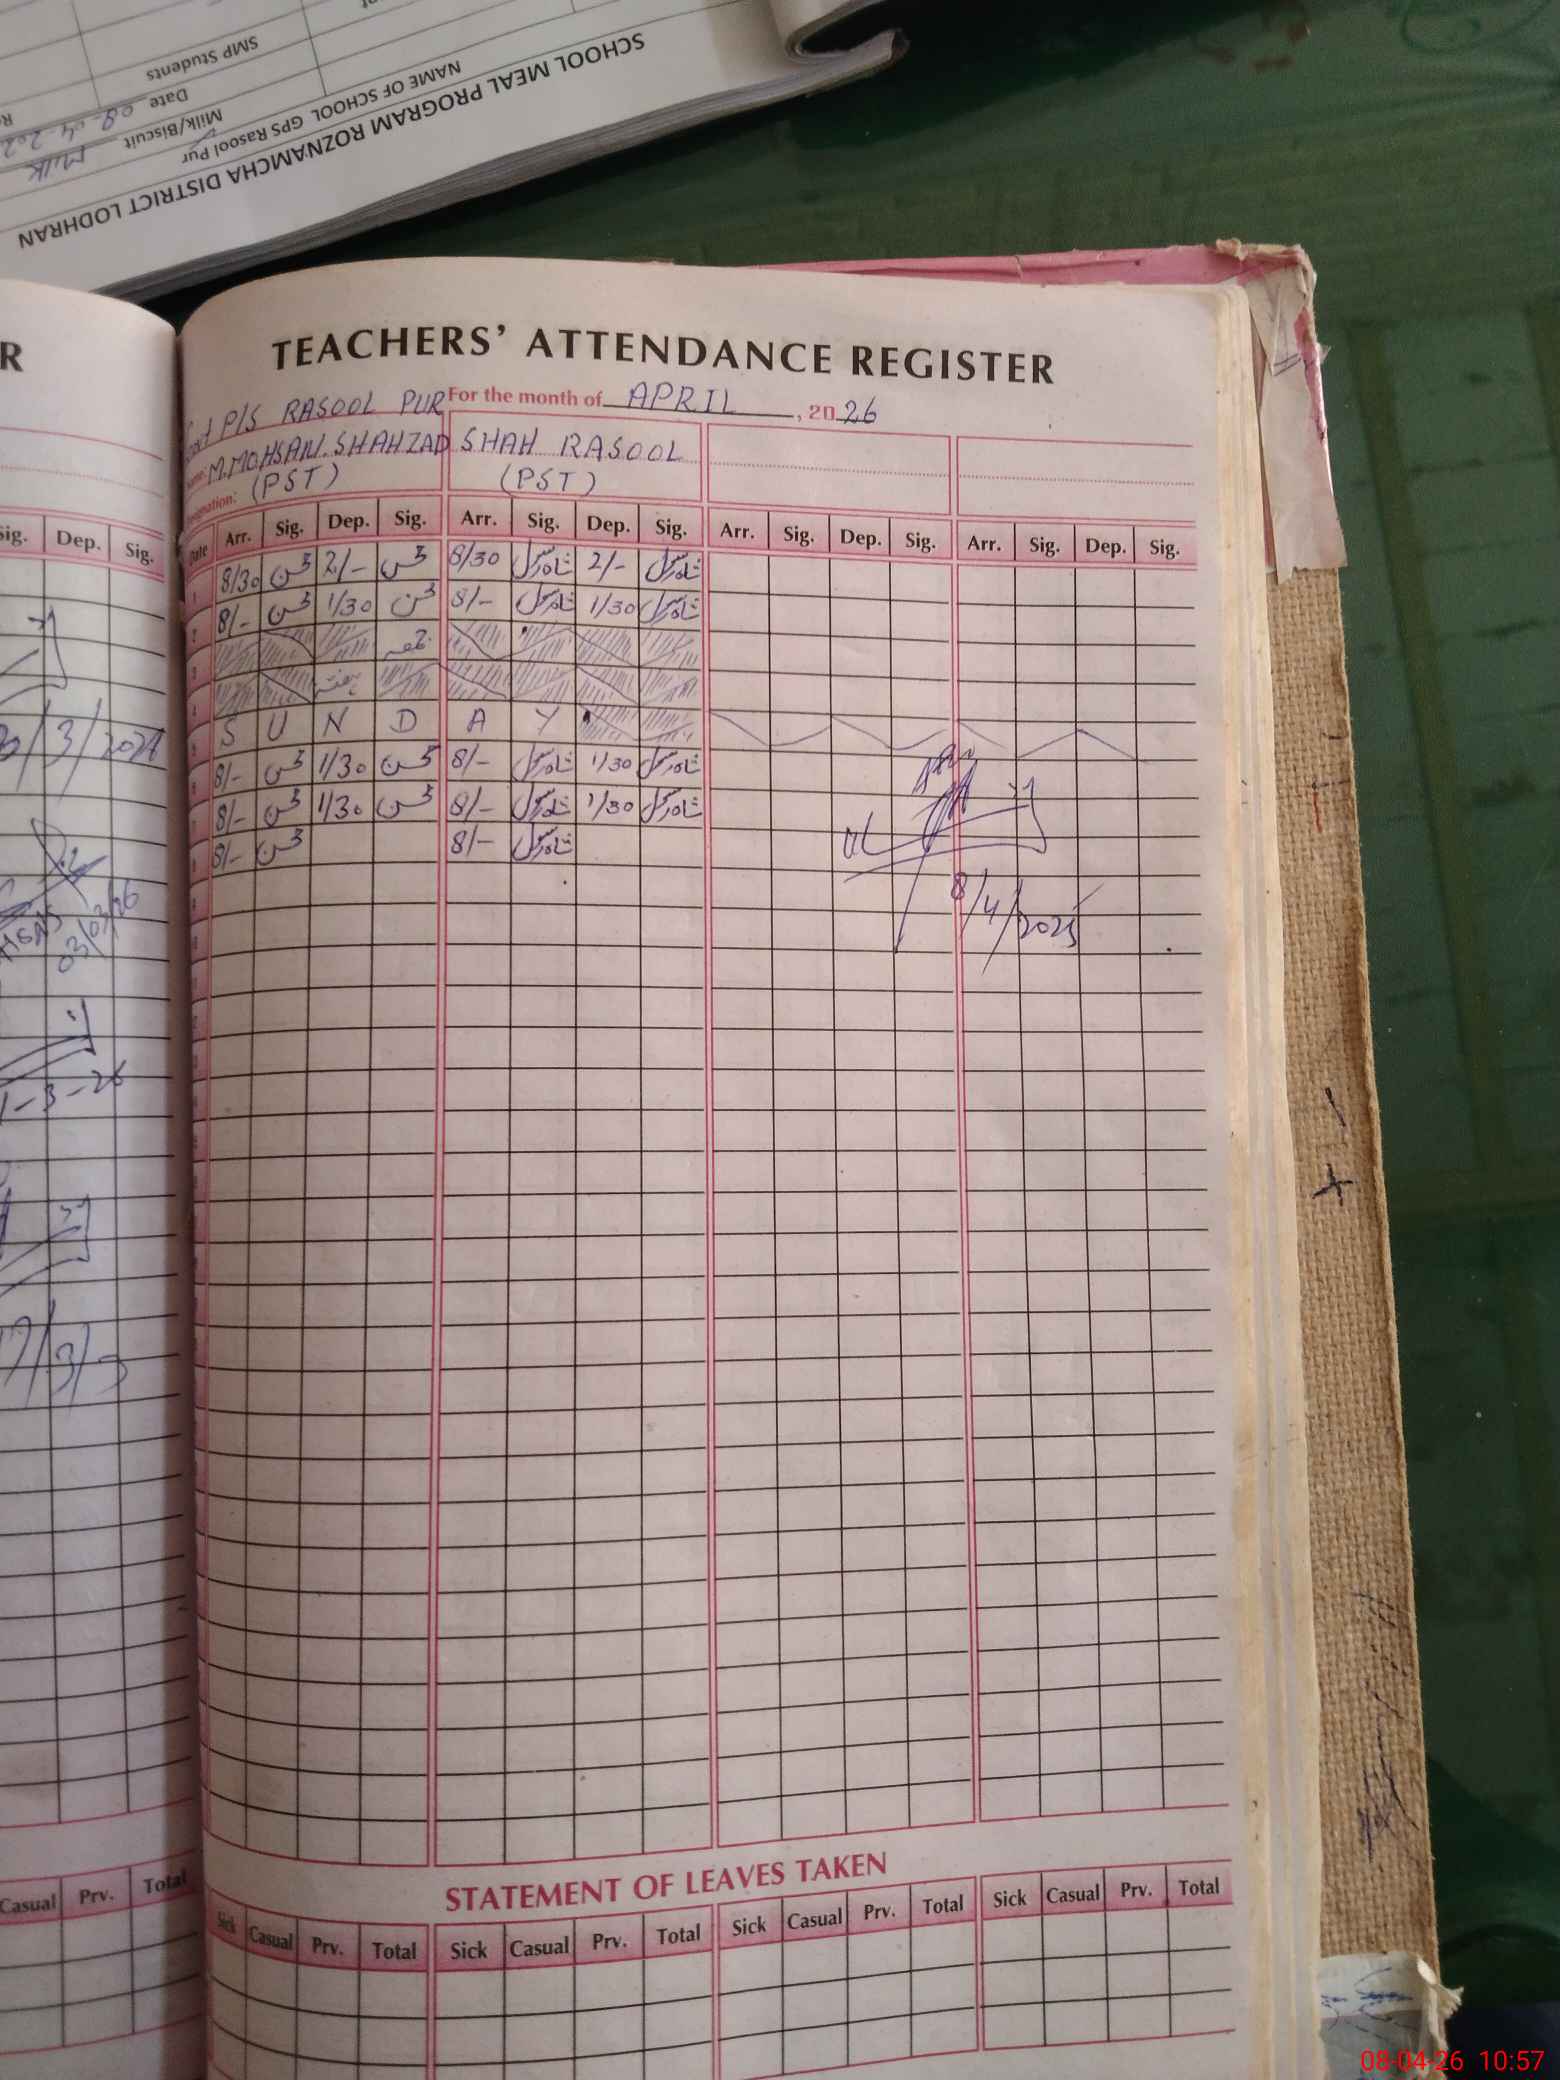 SCHOOL MEAL PROGRAM ROZNAMCHA DISTRICT LODHRAN
NAME OF SCHOOL GPS Rasool Pur
Milk/Biscuit Milk
Date 08-04-202
SMP Students
R
TEACHERS' ATTENDANCE REGISTER
P/S RASOOL PUR For the month of APRIL, 2026
M.MOHSAN.SHAHZAD SHAH RASOOL
Designation: (PST) (PST)
Sig. Dep. Sig.
Date Arr. Sig. Dep. Sig. Arr. Sig. Dep. Sig. Arr. Sig. Dep. Sig. Arr. Sig. Dep. Sig.
1 8/30 محسن 2/- محسن 8/30 شاہ رسول 2/- شاہ رسول
2 8/- محسن 1/30 محسن 8/- شاہ رسول 1/30 شاہ رسول
3
4 ہفتہ
5 S U N D A Y
6 8/- محسن 1/30 محسن 8/- شاہ رسول 1/30 شاہ رسول
7 8/- محسن 1/30 محسن 8/- شاہ رسول 1/30 شاہ رسول
8 8/- محسن 8/- شاہ رسول
03/03/26
1-3-26
17/3/
STATEMENT OF LEAVES TAKEN
Casual Prv. Total
Sick Casual Prv. Total Sick Casual Prv. Total Sick Casual Prv. Total Sick Casual Prv. Total
08-04-26 10:57